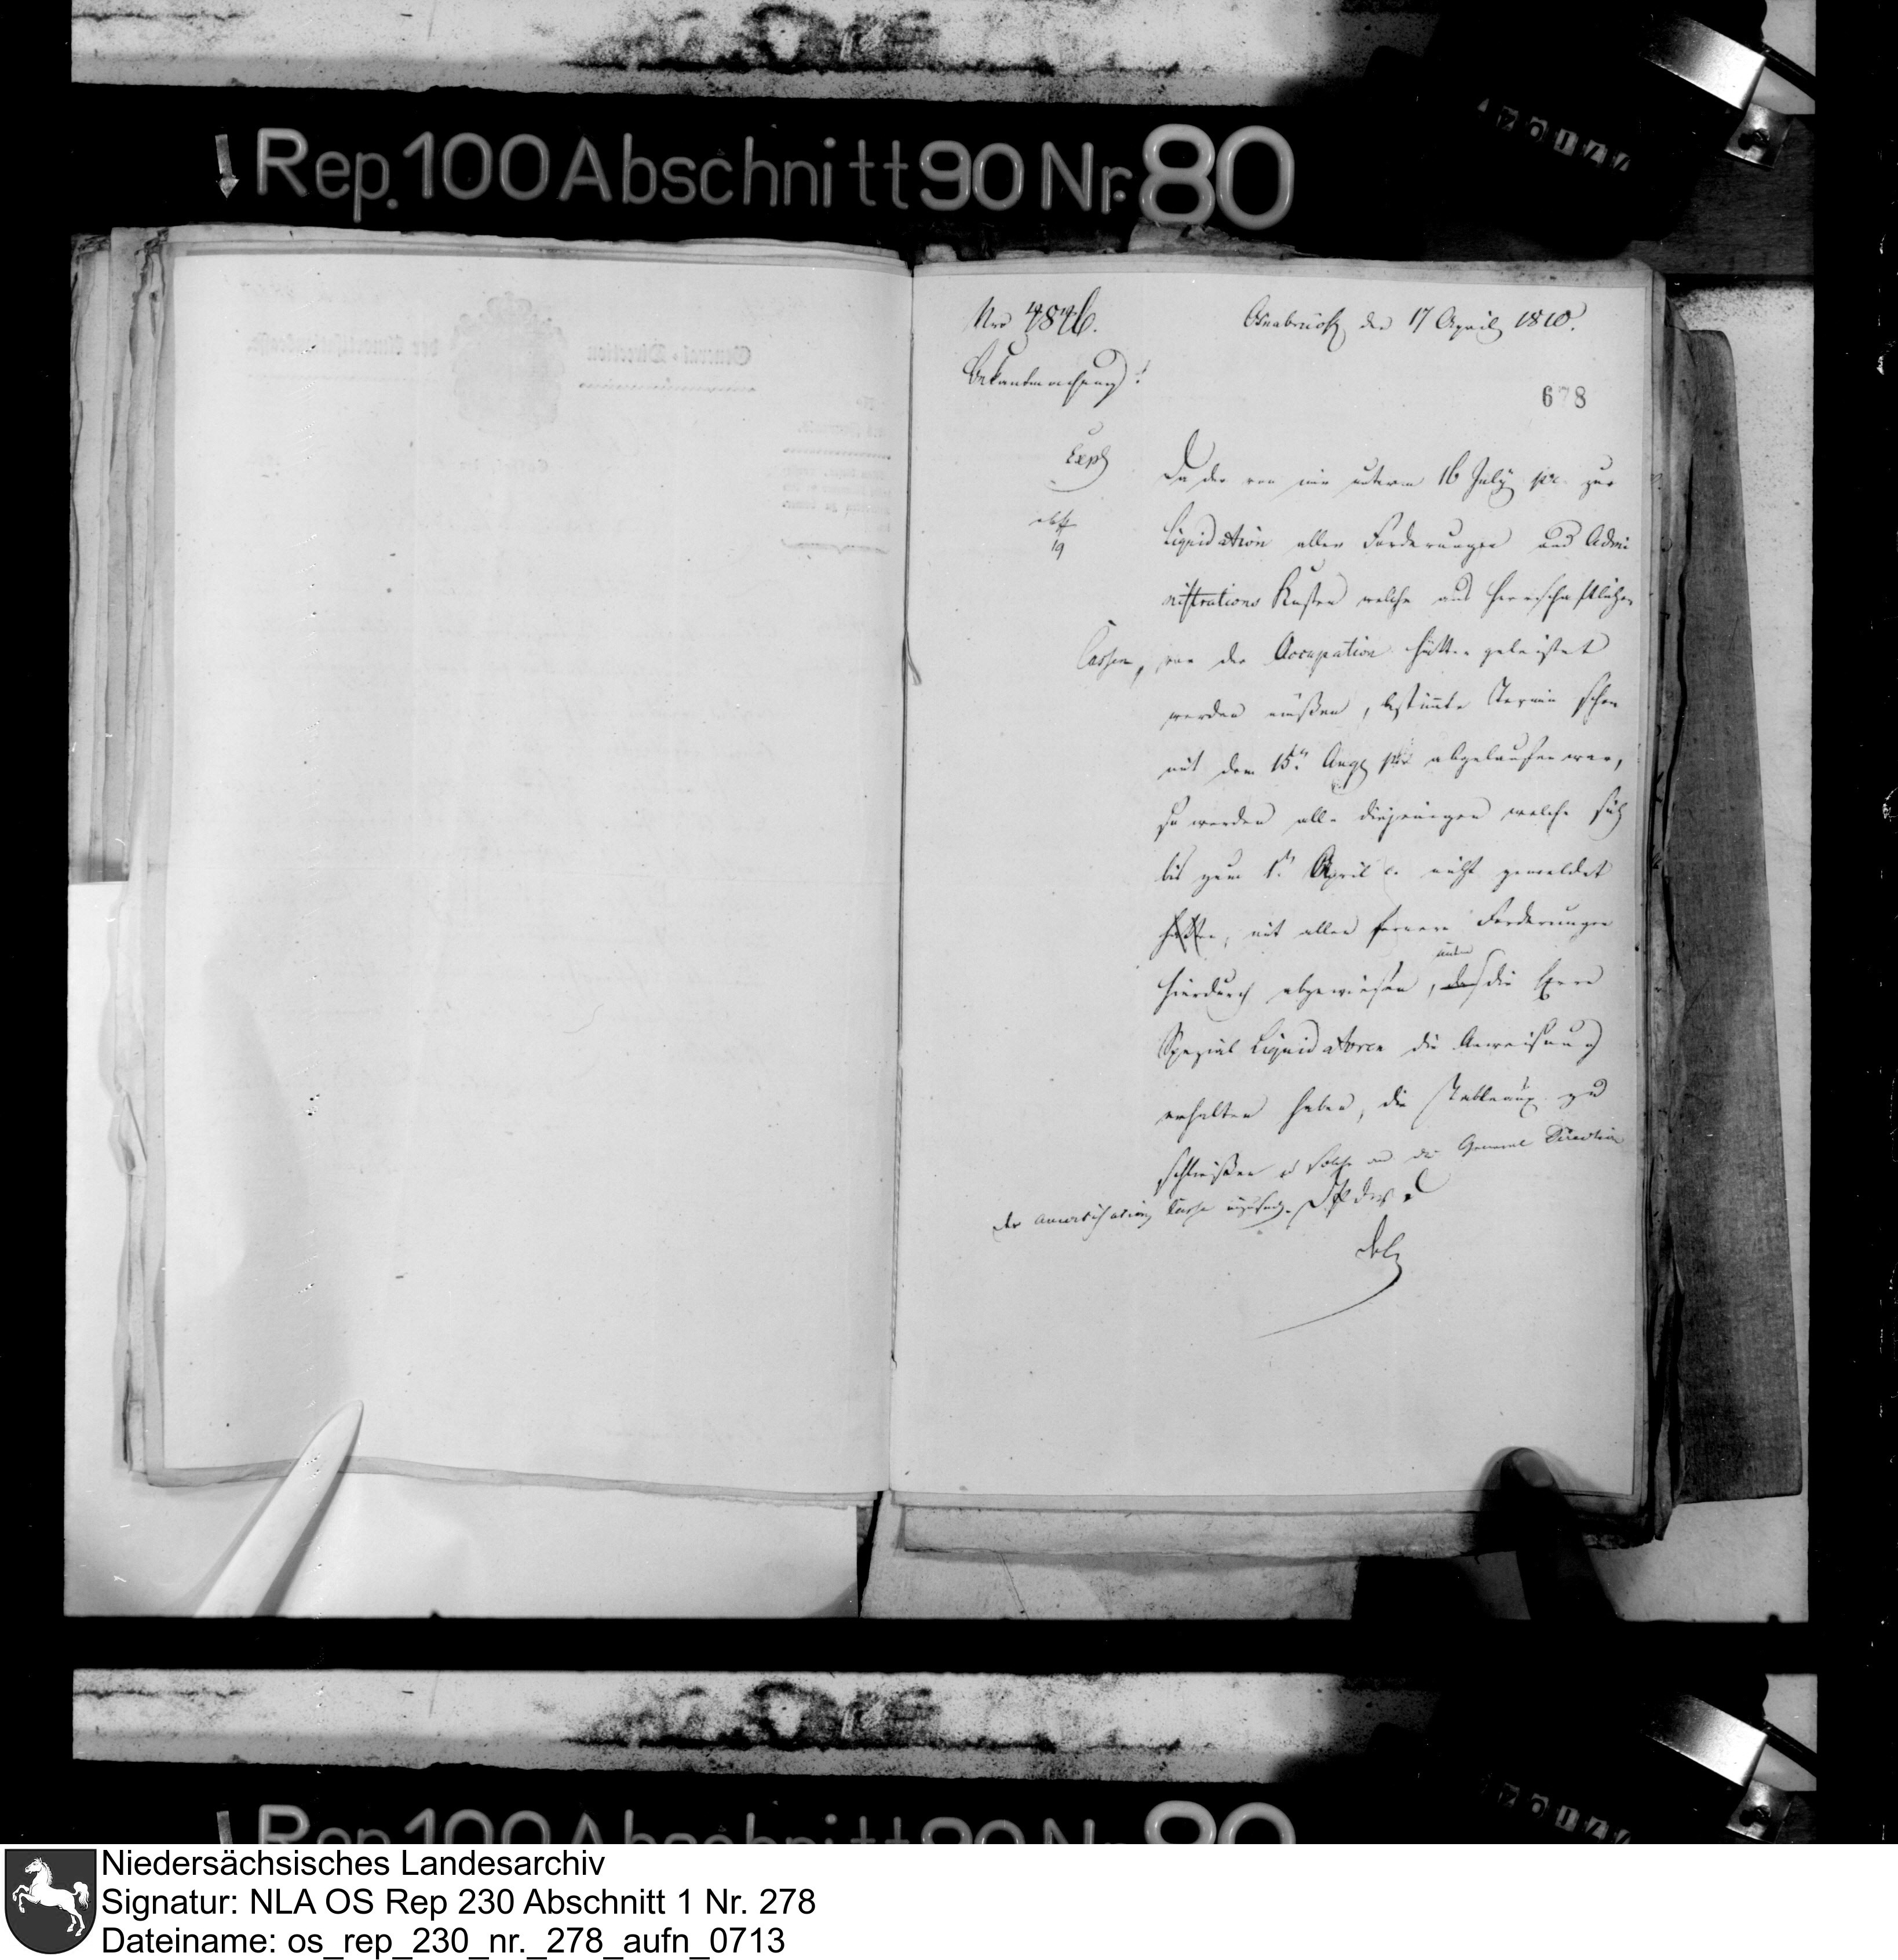 Rep. 100 Abschnitt 90 Nr. 80
Nro 4876.
Osnabrück den 17 April 1810.
Bekantmachung!
678
Exp
19
Da der von mir unterm 16 July pr. zur
Liquidation aller Forderungen und Admi
nistrations Kosten welche aus Herrschaftlichen
Cassen, vor der Occupation hätten geleistet
werden müßen, bestimte Termin schon
mit dem 15ten Aug pr abgelaufen war,
so werden alle diejenigen welche sich
bis zum 1ten April c. nicht gemeldet
hatten, mit allen fernern Forderungen
hierdurch abgewiesen, indem die Herrn
Spezial Liquidatoren die Anweisung
erhalten haben, die Tableaux zu
schließen u solche an die General Direction
der Amortisations Casse
Rep. 100 Abschnitt 90 Nr. 80
Niedersächsisches Landesarchiv
Signatur: NLA OS Rep 230 Abschnitt 1 Nr. 278
Dateiname: os_rep_230_nr._278_aufn_0713